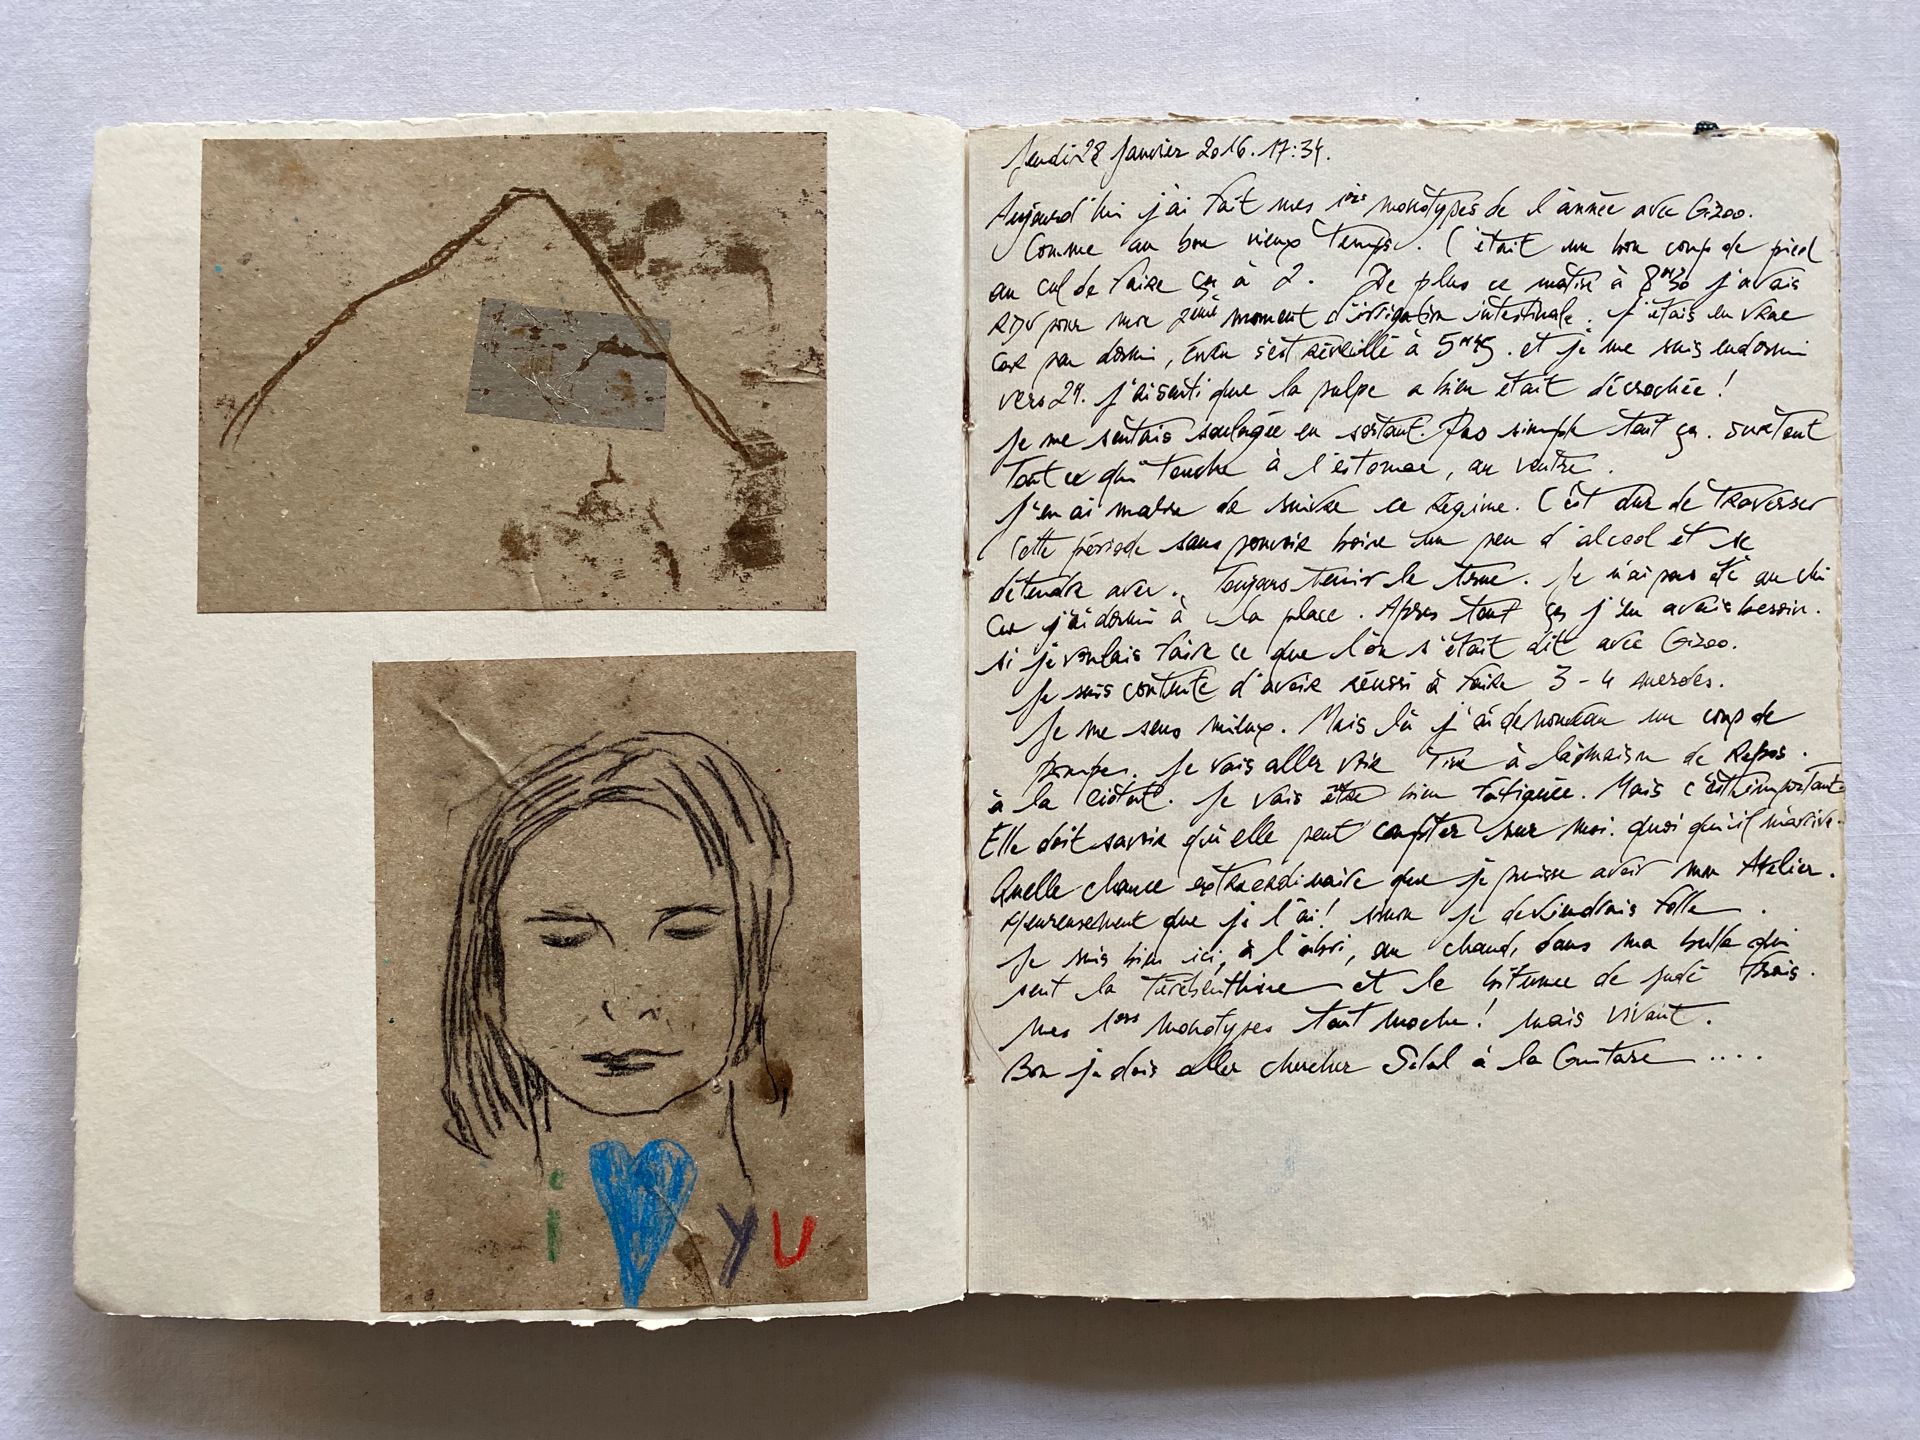 i yu
Jeudi 28 Janvier 2016. 17:34.
Aujourd'hui j'ai fait mes 1ers monotypes de l'année avec Gizoo.
Comme au bon vieux temps. C'était un bon coup de pied
au cul de faire ça à 2. De plus ce matin à 8h30 j'avais
RDV pour mon 2ème moment d'irrigation intestinale. J'étais en vrac
car peu dormi, s'est réveillé à 5h45. et je me suis endormi
vers 24. j'ai senti que la pulpe a bien était décrochée!
Je me sentais soulagée en sortant. Pas simple tout ça. surtout
tout ce qui touche à l'estomac, au ventre.
J'en ai marre de suivre ce régime. C'est dur de traverser
cette période sans pouvoir boire un peu d'alcool et se
détendre avec. Toujours tenir le . Je n'ai pas été au chi
car j'ai dormi à la place. Après tout ça j'en avais besoin.
si je voulais faire ce que l'on s'était dit avec Gizoo.
Je suis contente d'avoir réussi à faire 3-4 merdes.
Je me sens mieux. Mais là j'ai de nouveau un coup de
pompe. Je vais aller voir à la maison de Repos.
à la Ciotat. Je vais être bien fatiguée. Mais c'est important.
Elle doit savoir qu'elle peut compter sur moi. quoi qu'il m'arrive.
Quelle chance extraordinaire que je puisse avoir mon Atelier.
Heureusement que je l'ai! sinon je deviendrais folle.
Je suis bien ici, à l'abri, au chaud, dans ma bulle qui
sent la térébenthine et le bitume de judé frais.
mes 1ers monotypes tout moche! mais vivant.
Bon je dois aller chercher à la Guitare ....